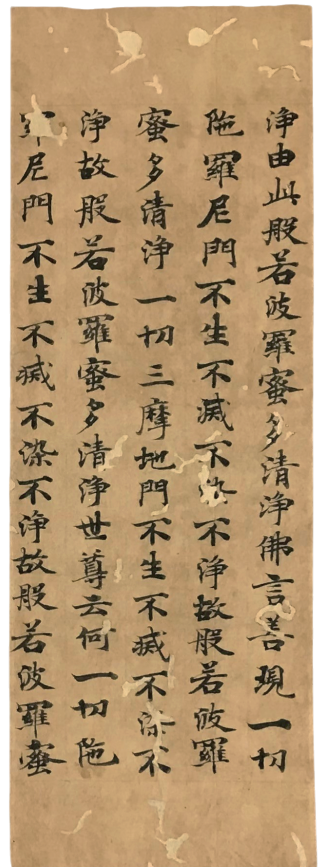 淨由此般若波羅蜜多清淨佛言善現一切
陁羅尼門不生不滅不染不淨故般若波羅
蜜多清淨一切三摩地門不生不滅不染不
淨故般若波羅蜜多清淨世尊云何一切陁
羅尼門不生不滅不染不淨故般若波羅蜜